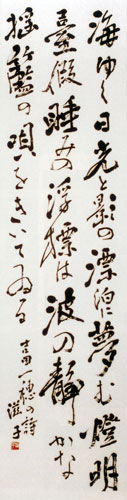 海ゆく日光と影の漂泊に夢む燈明
臺假睡みの浮標は波の静かな
揺籃の唄をきいてゐる
吉田一穂の詩